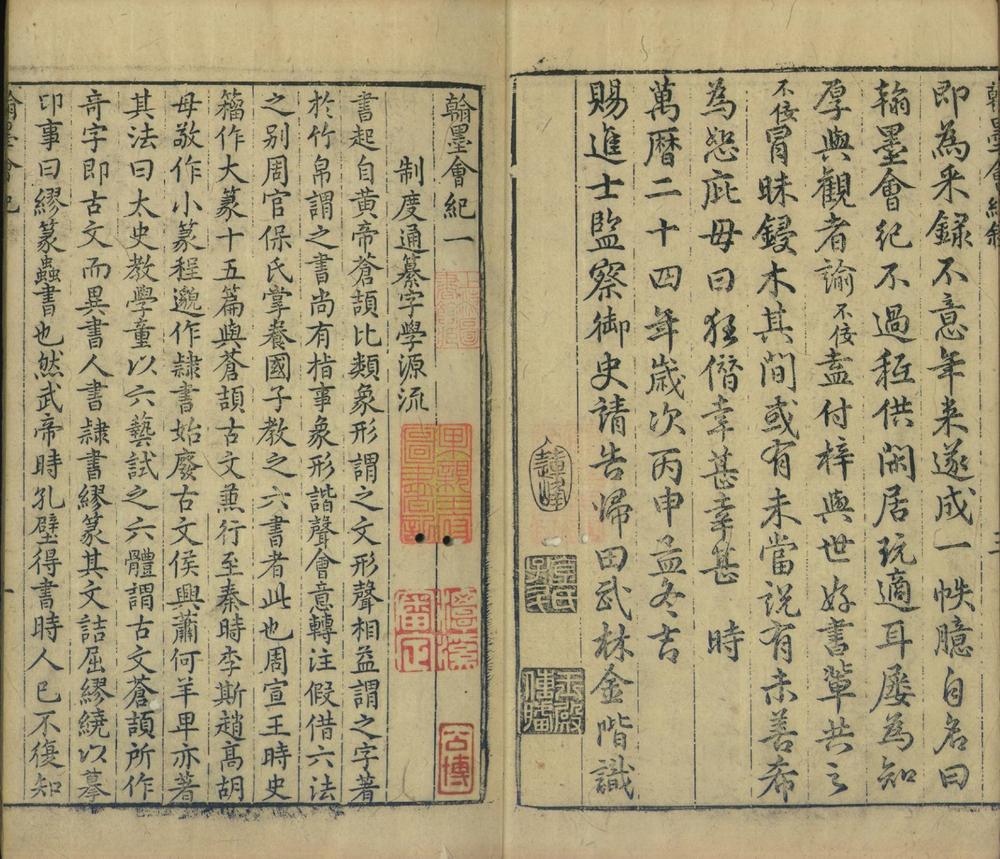 即為采録不意年来遂成一帙臆自名曰
翰墨會紀不過秪供閑居玩適耳屡為知
厚與觀者諭不佞盍付梓與世好書輩共之
不佞冒昧鋟木其間或有未當説有未善希
為恕庇毋曰狂僭幸甚幸甚 時
萬曆二十四年歲次丙申孟冬吉
賜進士監察御史請告歸田武林金階識
翰墨會紀一
制度通纂字學源流
書起自黄帝蒼頡比類象形謂之文形聲相益謂之字著
於竹帛謂之書尚有指事象形諧聲會意轉注假借六法
之别周官保氏掌養國子教之六書者此也周宣王時史
籕作大篆十五篇與蒼頡古文兼行至秦時李斯趙高胡
母敬作小篆程邈作隷書始廢古文侯興蕭何羊畀亦著
其法曰太史教學童以六藝試之六體謂古文蒼頡所作
竒字即古文而異書人書隷書繆篆其文詰屈繆繞以摹
印事曰繆篆蟲書也然武帝時孔壁得書時人已不復知
公博